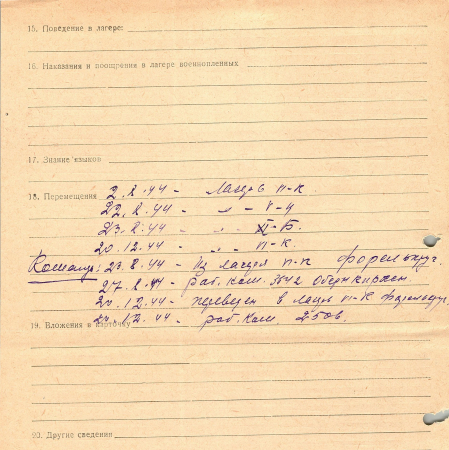 15. Поведение в лагере:
16. Наказания и поощрения в лагере военнопленных
17. Знание языков
18. Перемещения 2.8.44 - лагерь II-К.
22.8.44 - " - V-
23.8.44 - " - XI-Б.
20.12.44 - " - II-К.
Команды: 23.8.44 - Из лагеря II-К
27.8.44 - раб. ком. 3642
20.12.44 - переведен в лагерь II-К
19. Вложения в карточку .12.44 - раб. ком. 250в.
20. Другие сведения